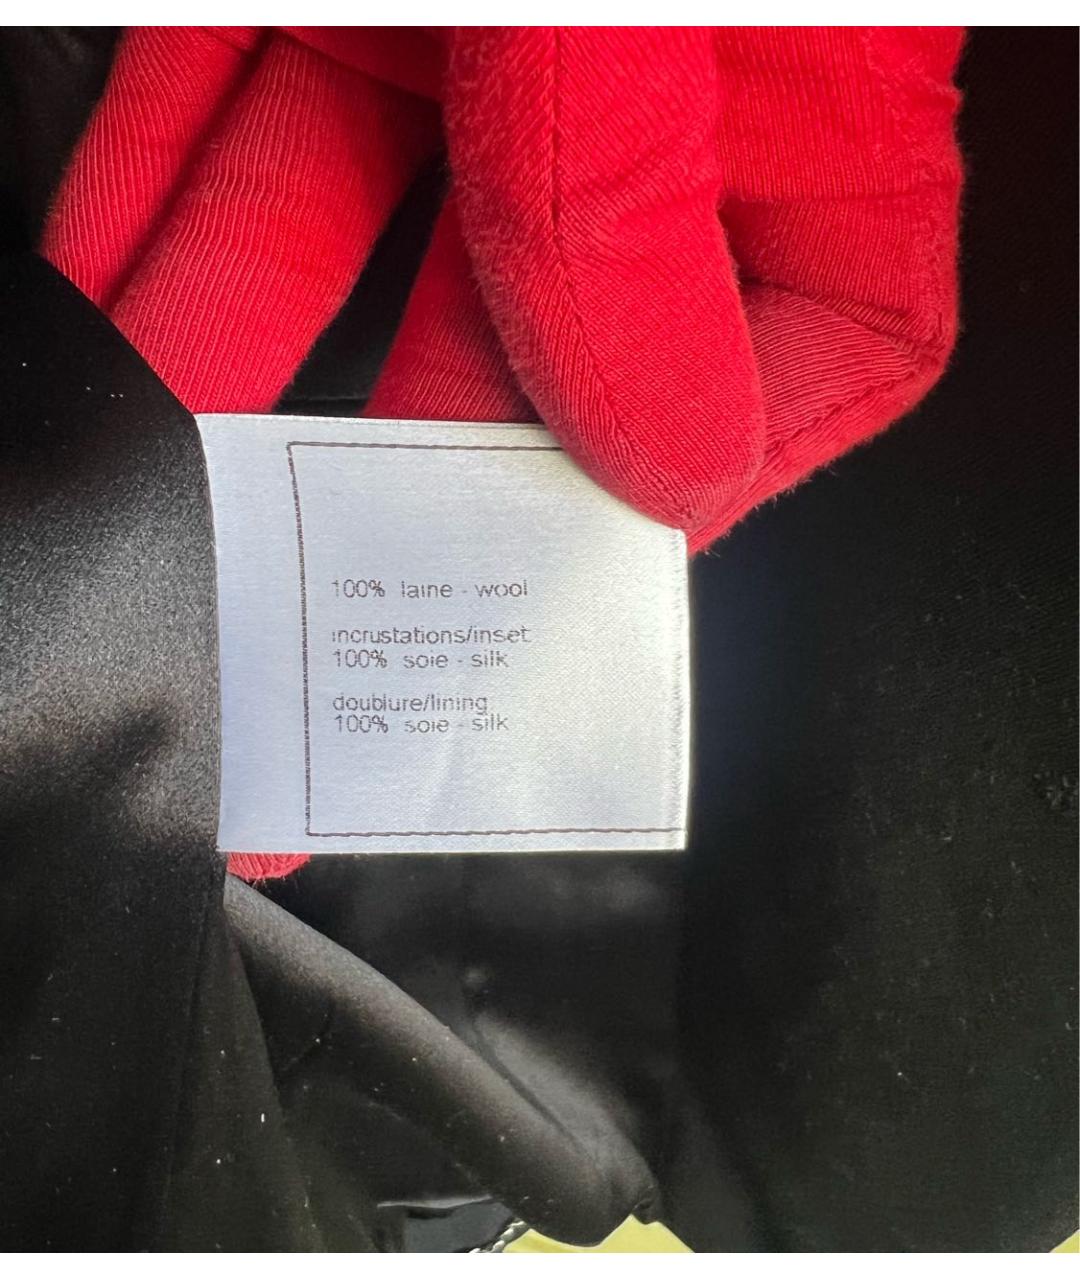 100% laine - wool
incrustations/inset
100% soie - silk
doublure/lining
100% soie - silk